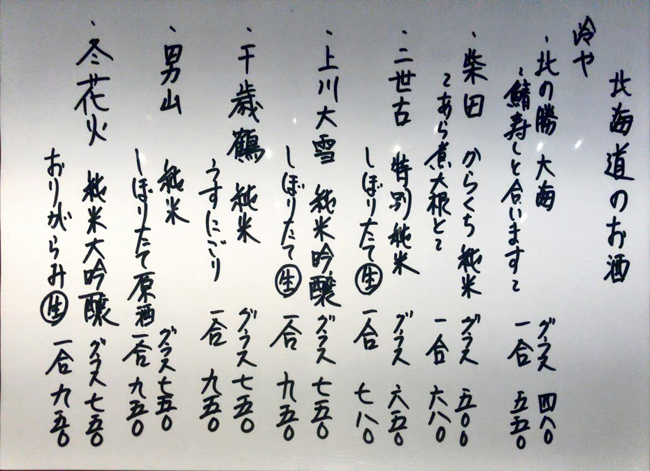 北海道のお酒
冷や
・北の勝 大海 グラス 四八〇
〜鯖寿しと合いますて 一合 五五〇
・柴田 からくち 純米 グラス 五〇〇
てあら煮大根とて 一合 六八〇
・二世古 特別純米 グラス 六五〇
しぼりたて生 一合 七八〇
・上川大雪 純米吟醸 グラス 七五〇
しぼりたて生 一合 九五〇
・千歳鶴 純米 グラス 七五〇
うすにごり 一合 九五〇
・男山 純米 グラス 七五〇
しぼりたて原酒 一合 九五〇
・冬花火 純米大吟醸 グラス 七五〇
おりがらみ生 一合 九五〇